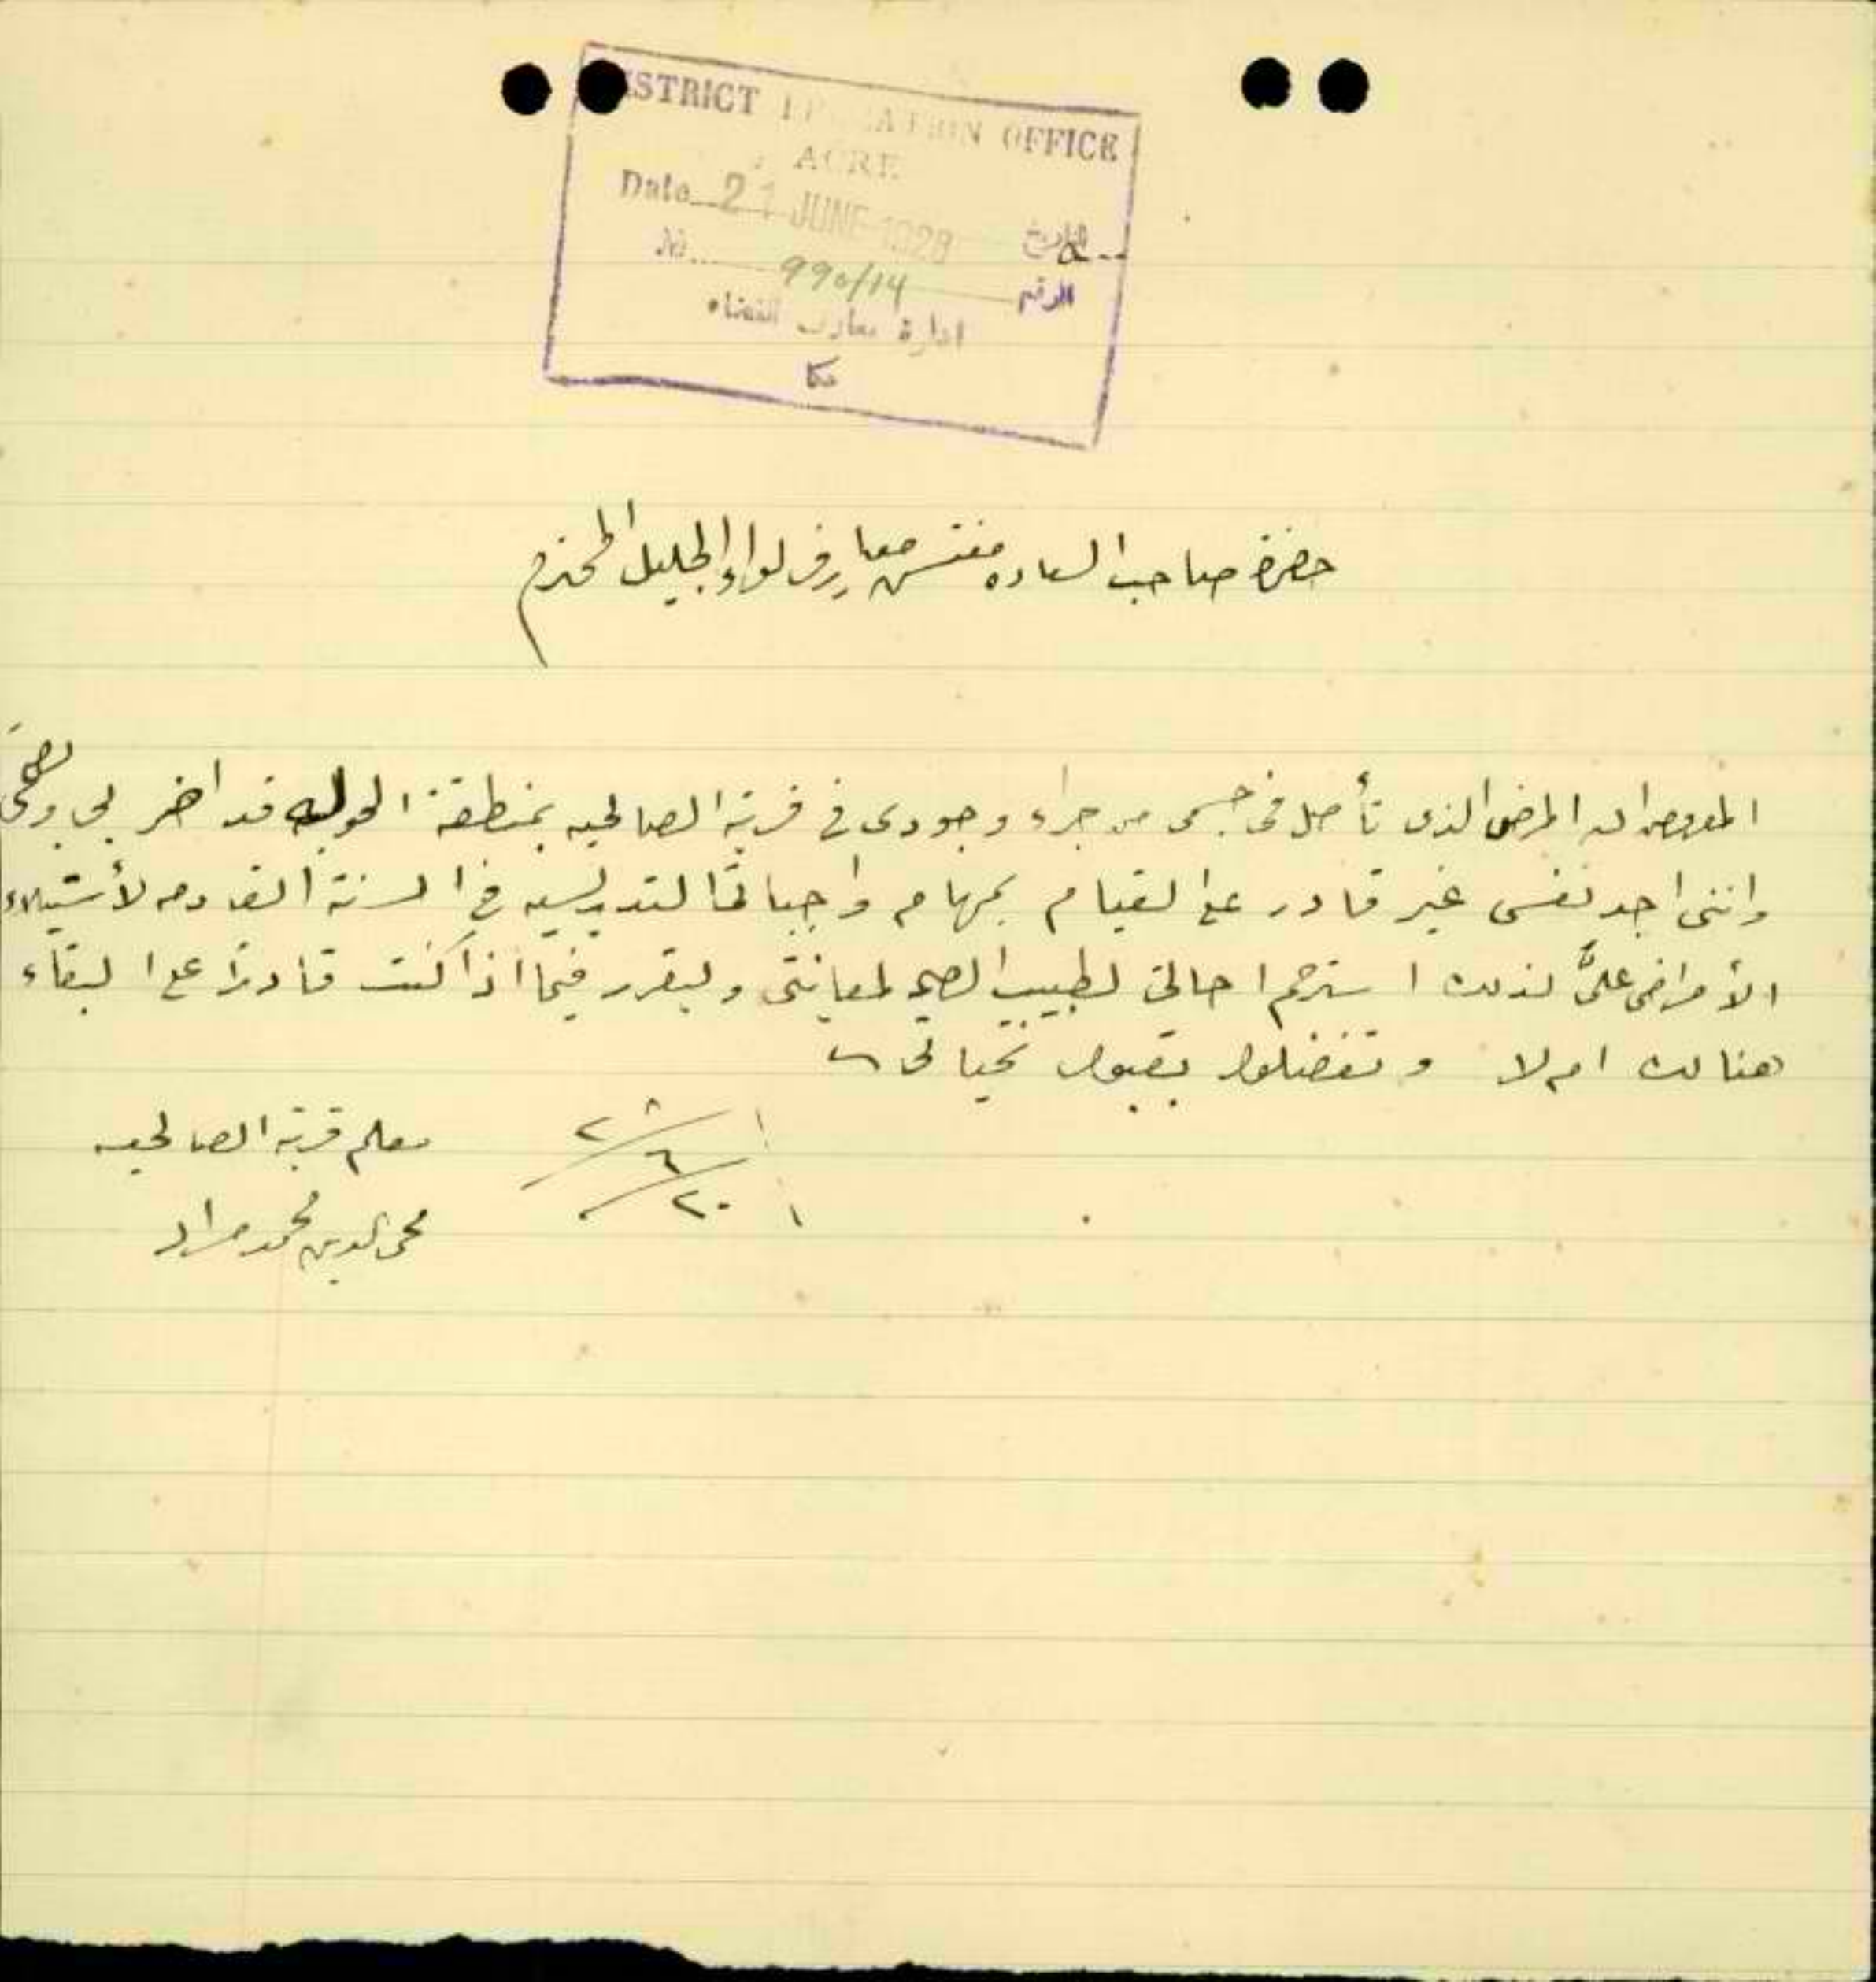 DISTRICT EDUCATION OFFICE
ACRE
Date 21 JUNE 1928 التاريخ
No. 990/14 الرقم
ادارة معارف القضاء
عكا
حضرة صاحب السعاده مفتش معارف لواء الجليل المحترم
المعروض ان المرض الذي تأصل في جسمي من جراء وجودي في قرية الصالحيه بمنطقة الحوله قد اضر بي وبصحتي
وانني اجد نفسي غير قادر على القيام بمهام واجباتي التدريسيه في السنة القادمه لأستيلاء
الأمراض عليَّ لذلك استرحم احالتي لطبيب الصحه لمعاينتي وليقرر فيما اذا كنت قادراً على البقاء
هنالك ام لا وتفضلوا بقبول تحياتي
٢٠/٦/٢٨ معلم قرية الصالحيه
محي الدين محمد مراد